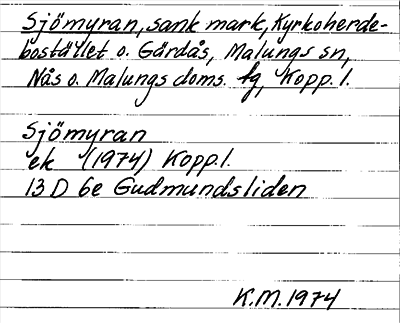 Sjömyran, sank mark, Kyrkoherde-
bostället o. Gärdås, Malungs sn,
Nås o. Malungs doms. fg, Kopp. l.
Sjömyran
ek (1974) Kopp.l.
13 D 6e Gudmundsliden
K.M. 1974